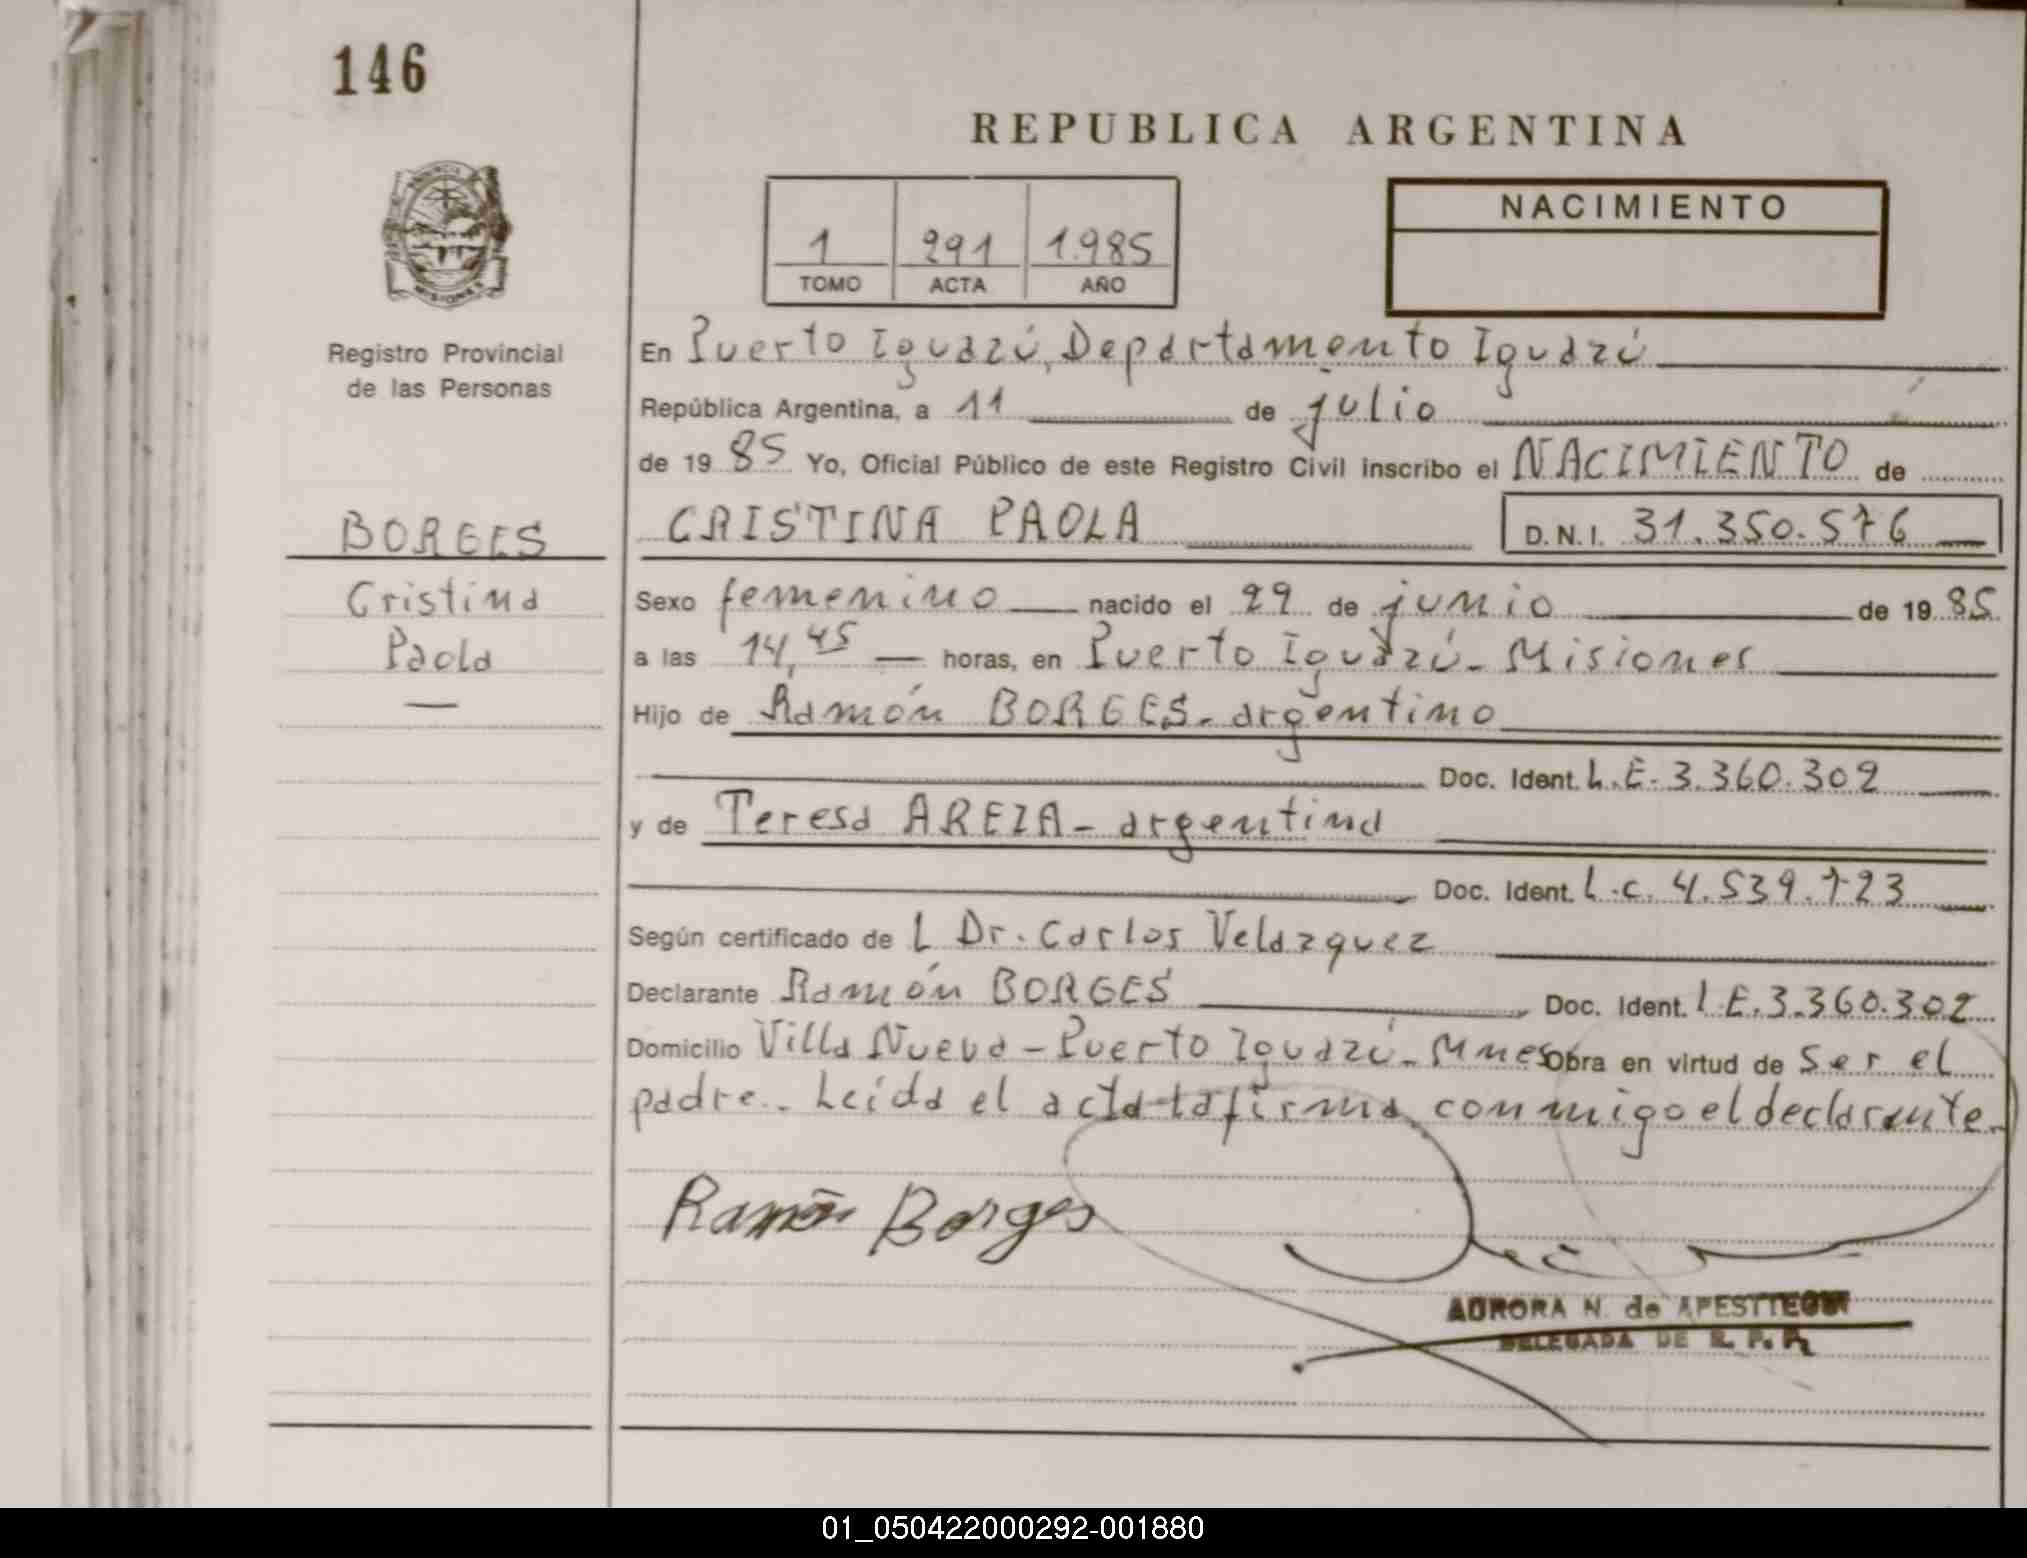 146
REPUBLICA ARGENTINA
NACIMIENTO
1 291 1.985
TOMO ACTA AÑO
Registro Provincial
de las Personas
En Puerto Iguazú, Departamento Iguazú
República Argentina, a 11 de julio
de 19 85 Yo, Oficial Público de este Registro Civil inscribo el NACIMIENTO de
BORGES
CRISTINA PAOLA D.N.I. 31.350.576
Cristina
Paola
Sexo femenino nacido el 29 de junio de 19 85
a las 14,45 horas, en Puerto Iguazú - Misiones
Hijo de Ramón BORGES - argentino
Doc. Ident. L.E. 3.360.302
y de Teresa AREZA - argentina
Doc. Ident. L.C. 4.539.723
Según certificado de L Dr. Carlos Velazquez
Declarante Ramón BORGES Doc. Ident. L.E. 3.360.302
Domicilio Villa Nueva - Puerto Iguazú - Mnes Obra en virtud de ser el
padre. - Leída el acta la firma conmigo el declarante.
Ramón Borges
AURORA N. de APESTEGUI
DELEGADA DE R. P. P.
01_050422000292-001880